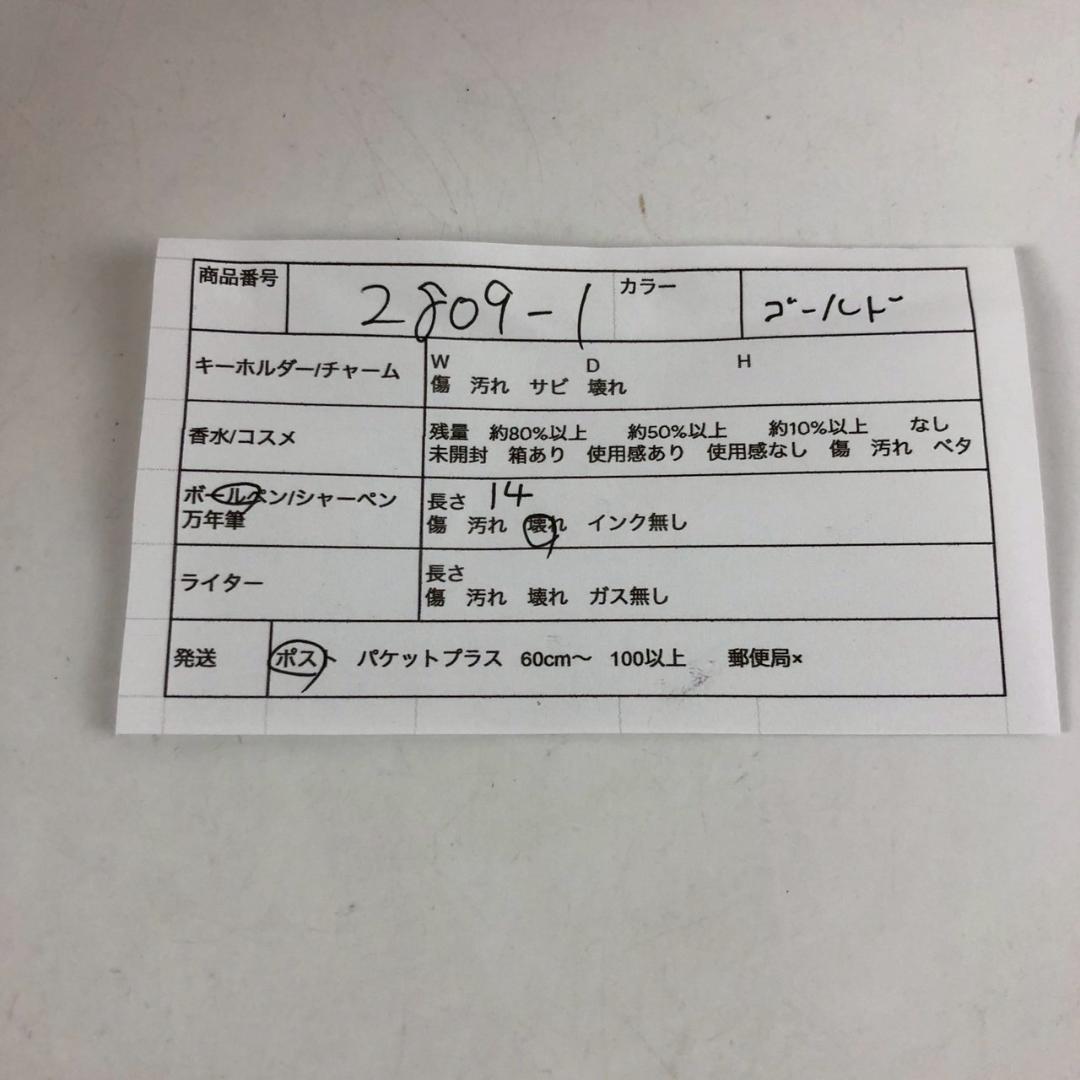 商品番号 2809-1 カラー ゴールド
キーホルダー/チャーム W D H
傷 汚れ サビ 壊れ
香水/コスメ 残量 約80%以上 約50%以上 約10%以上 なし
未開封 箱あり 使用感あり 使用感なし 傷 汚れ ベタ
ボールペン/シャーペン 長さ 14
万年筆 傷 汚れ 壊れ インク無し
ライター 長さ
傷 汚れ 壊れ ガス無し
発送 ポスト パケットプラス 60cm〜 100以上 郵便局×